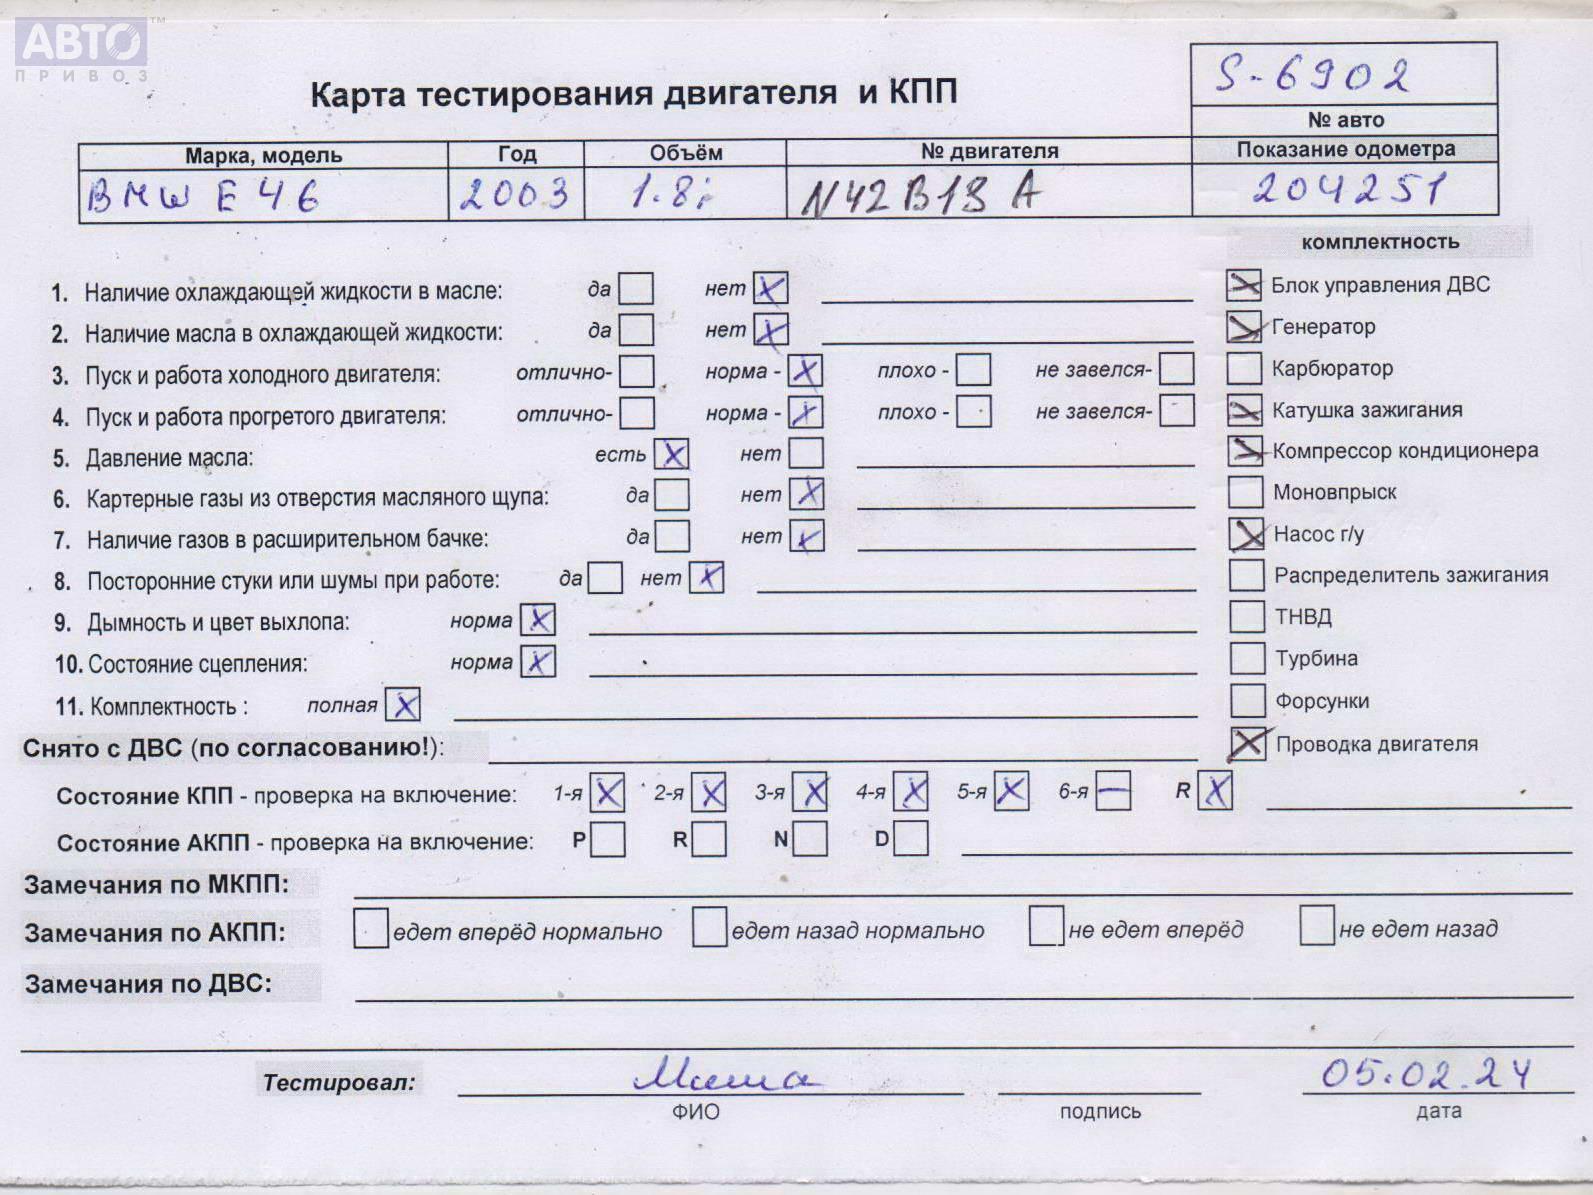 АВТО™
ПРИВОЗ
S-6902
Карта тестирования двигателя и КПП
№ авто
Марка, модель Год Объём № двигателя Показание одометра
BMW E46 2003 1.8i N42B18A 204251
комплектность
1. Наличие охлаждающей жидкости в масле: да нет X Блок управления ДВС
2. Наличие масла в охлаждающей жидкости: да нет X Генератор
3. Пуск и работа холодного двигателя: отлично- норма - X плохо - не завелся- Карбюратор
4. Пуск и работа прогретого двигателя: отлично- норма - X плохо - не завелся- Катушка зажигания
5. Давление масла: есть X нет Компрессор кондиционера
6. Картерные газы из отверстия масляного щупа: да нет X Моновпрыск
7. Наличие газов в расширительном бачке: да нет X Насос г/у
8. Посторонние стуки или шумы при работе: да нет X Распределитель зажигания
9. Дымность и цвет выхлопа: норма X ТНВД
10. Состояние сцепления: норма X Турбина
11. Комплектность : полная X Форсунки
Снято с ДВС (по согласованию!): Проводка двигателя
Состояние КПП - проверка на включение: 1-я X 2-я X 3-я X 4-я X 5-я X 6-я — R X
Состояние АКПП - проверка на включение: P R N D
Замечания по МКПП:
Замечания по АКПП: едет вперёд нормально едет назад нормально не едет вперёд не едет назад
Замечания по ДВС:
Тестировал: Миша 05.02.24
ФИО подпись дата